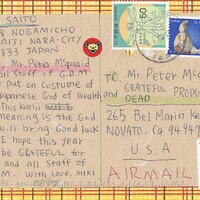 SAITO
8 NOGAMICHO
AITI NARA-CITY
833 JAPAN
Mr. Peter McQuaid
an Staff of G.D.M
put on costume of
apanese God of Wealth
This Kanji
meaning is the God
will bring Good luck
I hope this year
be GRATEFUL for
and all Staff of
M. With LOVE, MIKI
50
TO. Mr Peter Mc
GRATEFUL PRODU
DEAD
265 Bel Marin Ke
NOVATO. CA 9494
U.S.A
AIRMAIL